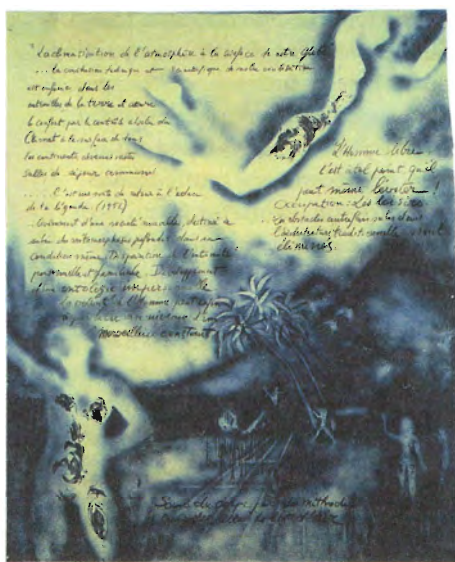 "La climatisation de l'atmosphère à la surface de notre globe
... la conclusion technique et scientifique de notre civilisation
est enfouie dans les
entrailles de la terre et assure
le confort par le contrôle absolu du
Climat à la surface de tous
les continents devenus vastes
salles de séjour communes.
.... C'est une sorte de retour à l'eden
de la légende (1951)
..Avènement d'une société nouvelle, destinée à
subir des métamorphoses profondes dans sa
condition même. Disparition de l'intimité
personnelle et familiale. Développement
d'une ontologie impersonnelle
la volonté de l'Homme peut enfin
au niveau d'un
"merveilleux" constant
L'Homme libre
l'est à tel point qu'il
peut même léviter !
Occupation : Les loisirs
..Les obstacles autrefois subis dans
l'architecture traditionnelle sont
éliminés.
Soins du corps par des méthodes